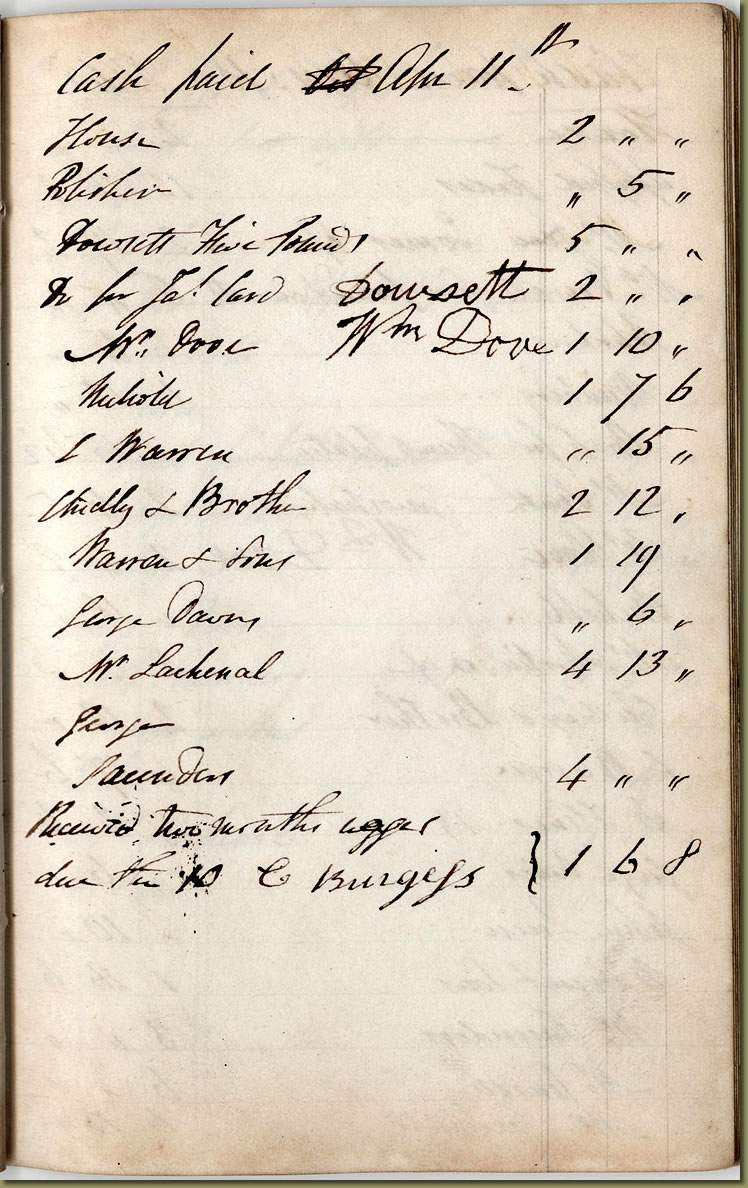 Cash paid Apr 11th
House 2 " "
Polisher " 5 "
Dowsett Five Pounds 5 " "
Do for Jas. Card Dowsett 2 " "
Mr. Dove Wm Dove 1 10 "
Nickold 1 7 6
C Warren " 15 "
Chidly & Brother 2 12 "
Warren & Sons 1 19
George Daws " 6 "
Mr Lachenal 4 13 "
George
Saunders 4 " "
Received two months wages
due this 10 C Burgess } 1 6 8